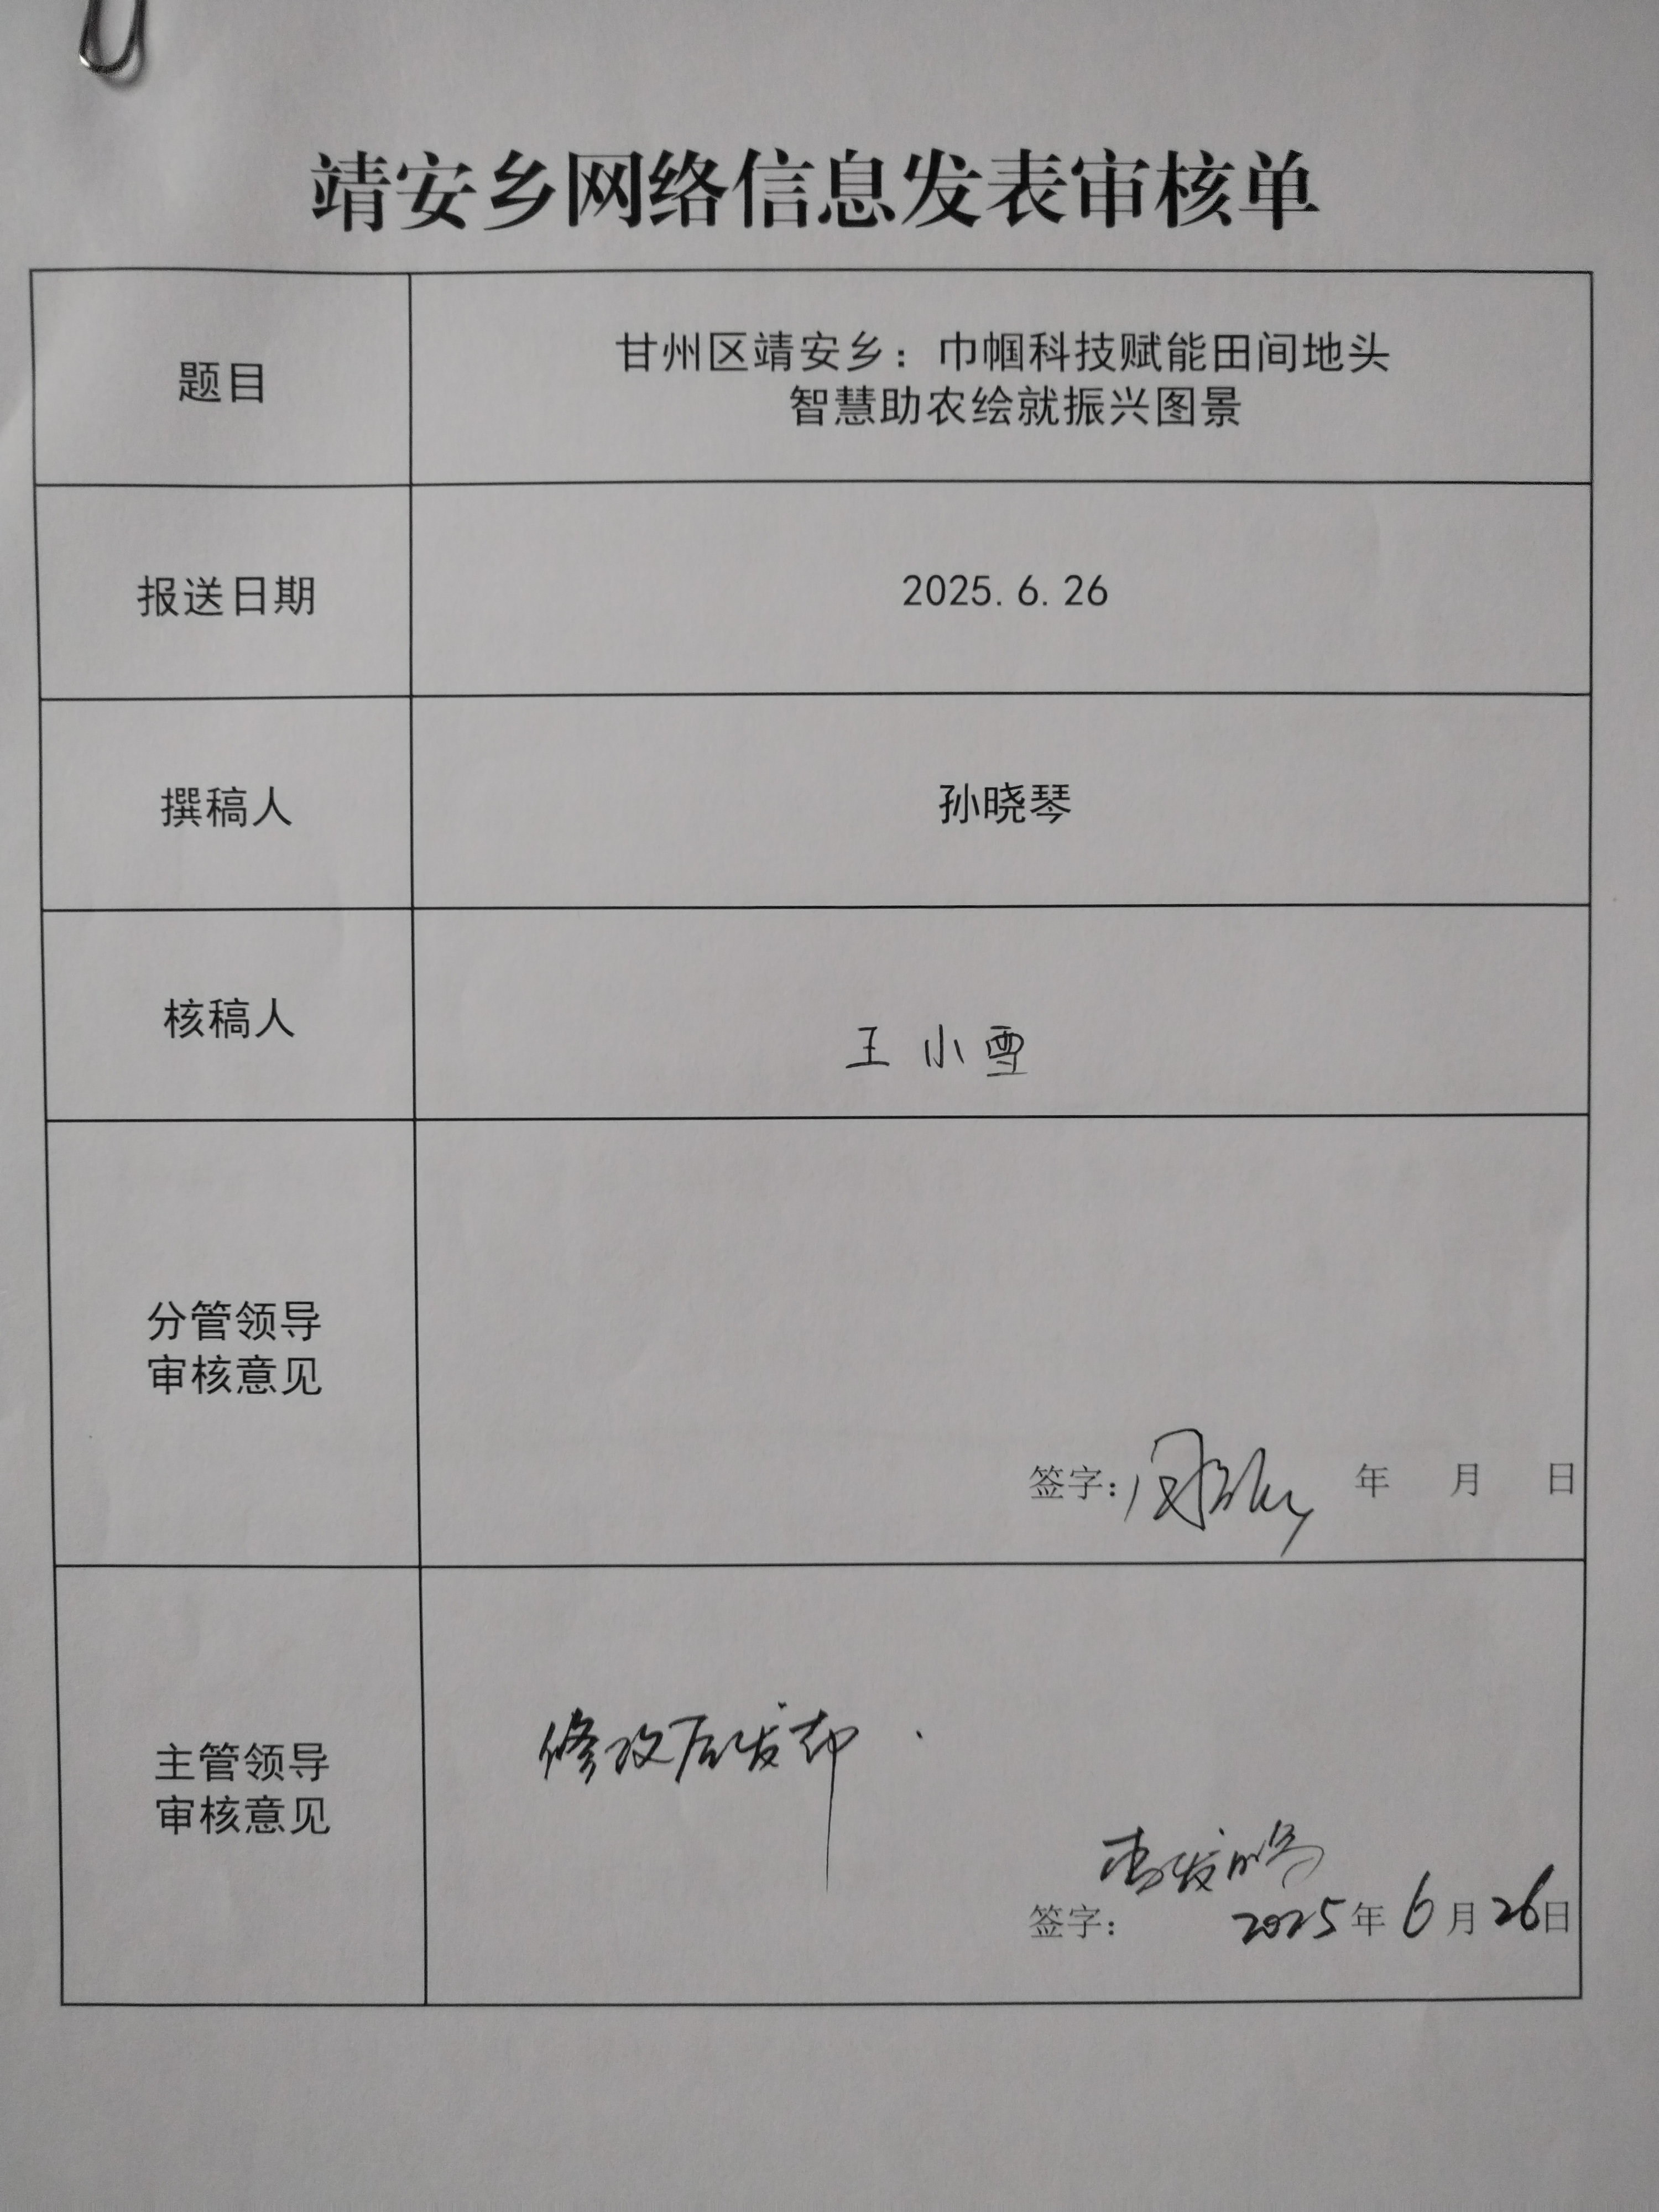 靖安乡网络信息发表审核单
题目
甘州区靖安乡：巾帼科技赋能田间地头
智慧助农绘就振兴图景
报送日期
2025.6.26
撰稿人
孙晓琴
核稿人
王小雪
分管领导
审核意见
签字： 年 月 日
主管领导
审核意见
修改后发布.
签字： 2025年6月26日